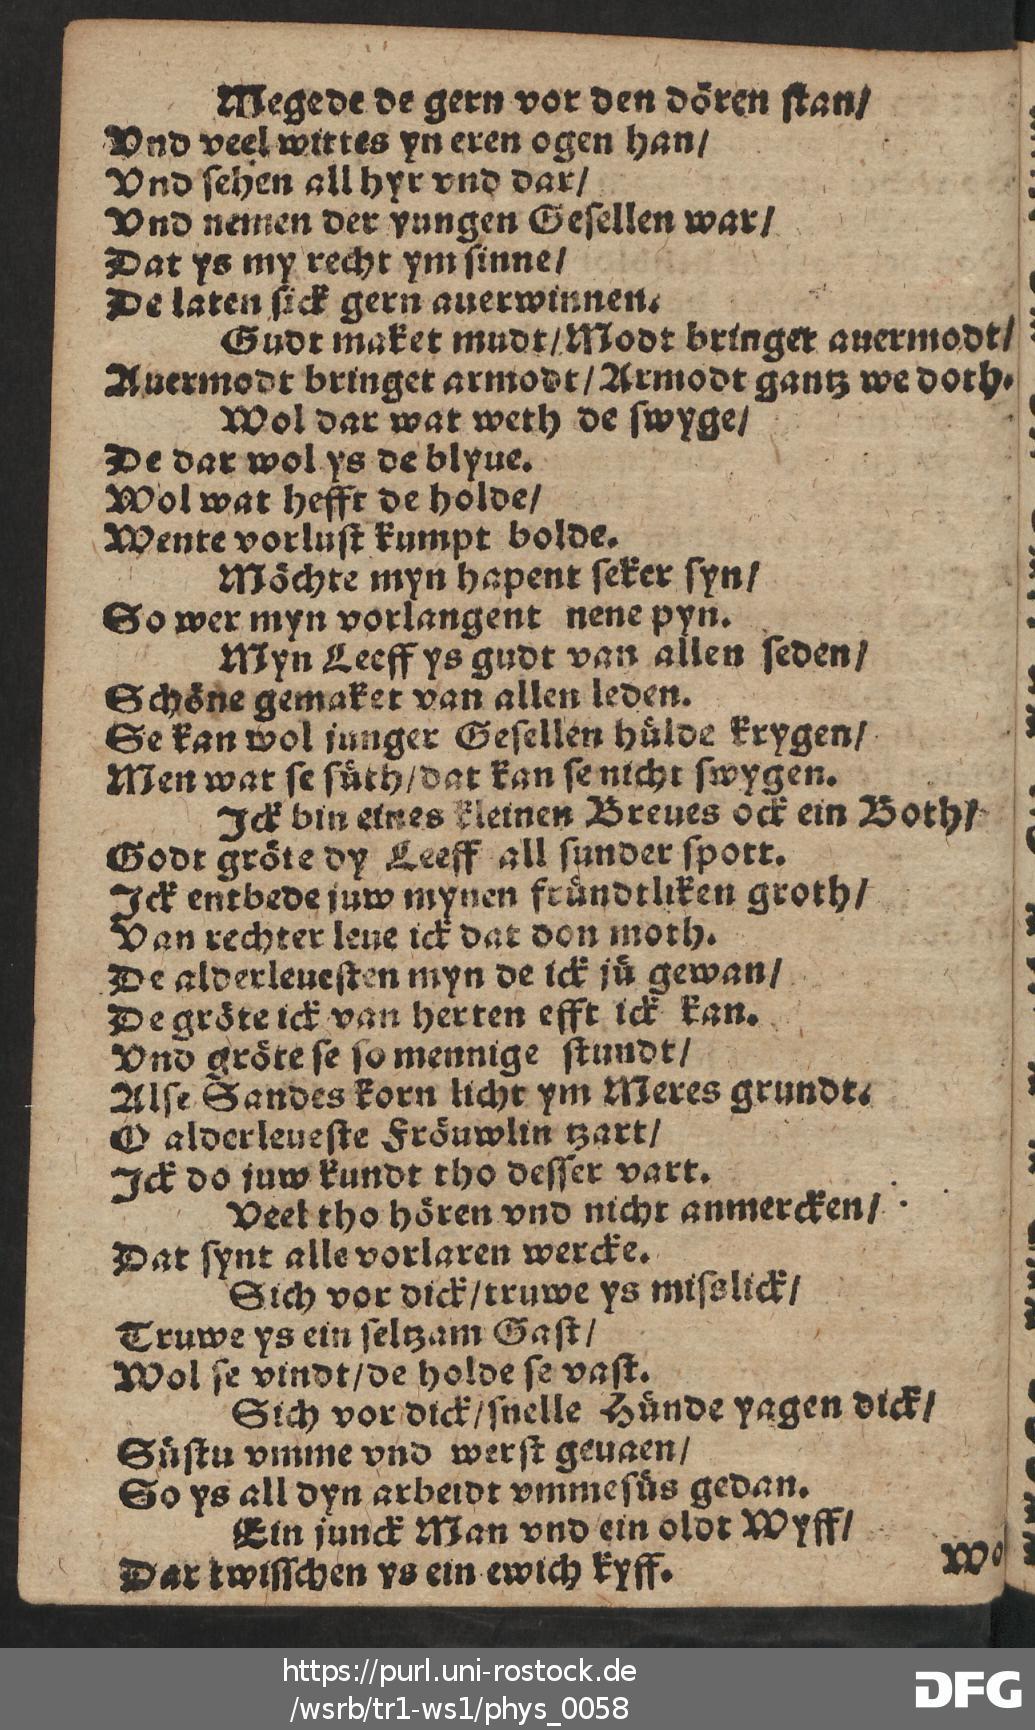 Megede de gern vor den dören stan/
Vnd veel wittes yn eren ogen han/
Vnd sehen all hyr vnd dar/
Vnd nemen der yungen Gesellen war/
Dat ys my recht ym sinne/
De laten sick gern auerwinnen.
Gudt maket mudt/Modt bringet auermodt/
Auermodt bringet armodt/Armodt gantz we doth.
Wol dar wat weth de swyge/
De dar wol ys de blyue.
Wol wat hefft de holde/
Wente vorlust kumpt bolde.
Möchte myn hapent seker syn/
So wer myn vorlangent nene pyn.
Myn Leeff ys gudt van allen seden/
Schöne gemaket van allen leden.
Se kan wol junger Gesellen hülde krygen/
Men wat se süth/dat kan se nicht swygen.
Jck bin eines kleinen Breues ock ein Both/
Godt gröte dy Leeff all sunder spott.
Jck entbede juw mynen fründtliken groth/
Van rechter leue ick dat don moth.
De alderleuesten myn de ick jü gewan/
De gröte ick van herten efft ick kan.
Vnd gröte se so mennige stundt/
Alse Sandes korn licht ym Meres grundt.
O alderleueste Fröuwlin tzart/
Jck do juw kundt tho desser vart.
Veel tho hören vnd nicht anmercken/
Dat synt alle vorlaren wercke.
Sich vor dick/truwe ys misslick/
Truwe ys ein seltzam Gast/
Wol se vindt/de holde se vast.
Sich vor dick/snelle Hünde yagen dick/
Süstu vmme vnd werst geuaen/
So ys all dyn arbeidt vmmesüs gedan.
Ein junck Man vnd ein oldt Wyff/
Dar twisschen ys ein ewich kyff.
Wo
https://purl.uni-rostock.de
/wsrb/tr1-ws1/phys_0058
DFG